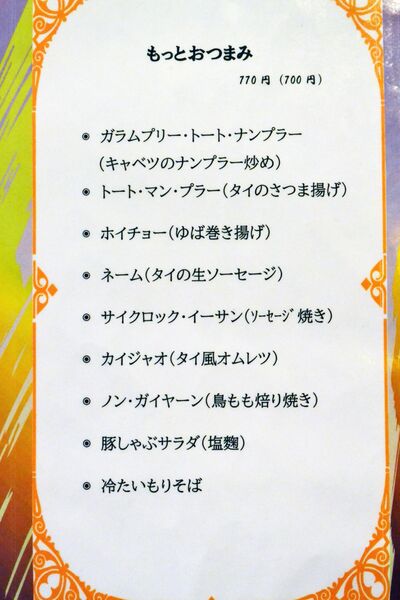 もっとおつまみ
770円（700円）
◉ ガラムプリー・トート・ナンプラー
（キャベツのナンプラー炒め）
◉ トート・マン・プラー（タイのさつま揚げ）
◉ ホイチョー（ゆば巻き揚げ）
◉ ネーム（タイの生ソーセージ）
◉ サイクロック・イーサン（ｿｰｾｰｼﾞ焼き）
◉ カイジャオ（タイ風オムレツ）
◉ ノン・ガイヤーン（鳥もも焙り焼き）
◉ 豚しゃぶサラダ（塩麴）
◉ 冷たいもりそば